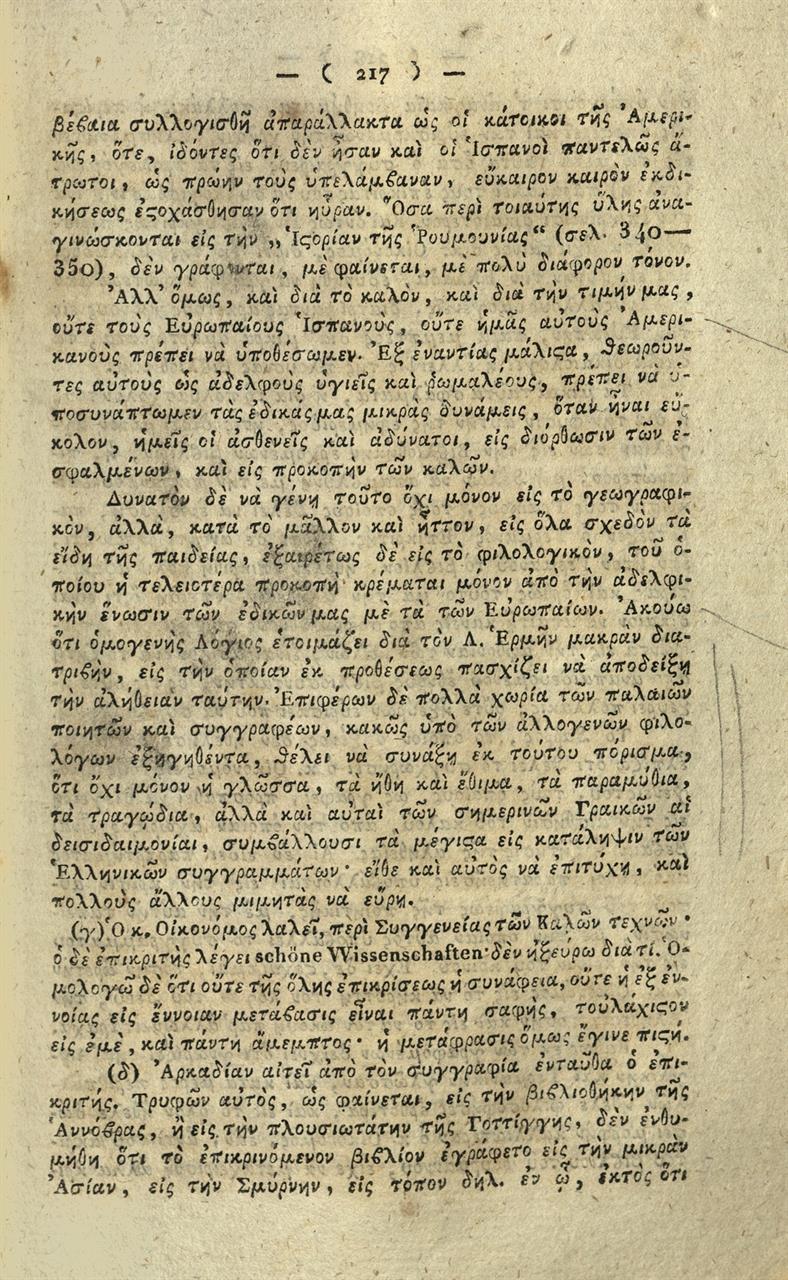 — ( 217 ) —
βέβαια συλλογισθῆ ἀπαράλλακτα ὡς οἱ κάτοικοι τῆς Ἀμερι-
κῆς, ὅτε, ἰδόντες ὅτι δὲν ἦσαν καὶ οἱ Ἱσπανοὶ παντελῶς ἄ-
τρωτοι, ὡς πρώην τοὺς ὑπελάμβαναν, εὔκαιρον καιρὸν ἐκδι-
κήσεως ἐϛοχάσθησαν ὅτι ηὗραν. Ὅσα περὶ τοιαύτης ὕλης ἀνα-
γινώσκονται εἰς τὴν „Ἱϛορίαν τῆς Ῥουμουνίας“ (σελ. 340—
350), δὲν γράφονται, μὲ φαίνεται, μὲ πολὺ διάφορον τόνον.
Ἀλλ' ὅμως, καὶ διὰ τὸ καλὸν, καὶ διὰ τὴν τιμήν μας,
οὔτε τοὺς Εὐρωπαίους Ἱσπανοὺς, οὔτε ἡμᾶς αὐτοὺς Ἀμερι-
κανοὺς πρέπει νὰ ὑποθέσωμεν. Ἐξ ἐναντίας μάλιϛα, θεωροῦν-
τες αὐτοὺς ὡς ἀδελφοὺς ὑγιεῖς καὶ ῥωμαλέους, πρέπει νὰ ὑ-
ποσυνάπτωμεν τὰς ἐδικάς μας μικρὰς δυνάμεις, ὅταν ἦναι εὔ-
κολον, ἡμεῖς οἱ ἀσθενεῖς καὶ ἀδύνατοι, εἰς διόρθωσιν τῶν ἐ-
σφαλμένων, καὶ εἰς προκοπὴν τῶν καλῶν.
Δυνατὸν δὲ νὰ γένῃ τοῦτο ὄχι μόνον εἰς τὸ γεωγραφι-
κὸν, ἀλλὰ, κατὰ τὸ μᾶλλον καὶ ἧττον, εἰς ὅλα σχεδὸν τὰ
εἴδη τῆς παιδείας, ἐξαιρέτως δὲ εἰς τὸ φιλολογικὸν, τοῦ ὁ-
ποίου ἡ τελειοτέρα προκοπὴ κρέμαται μόνον ἀπὸ τὴν ἀδελφι-
κὴν ἕνωσιν τῶν ἐδικῶν μας μὲ τὰ τῶν Εὐρωπαίων. Ἀκούω
ὅτι ὁμογενὴς Λόγιος ἑτοιμάζει διὰ τὸν Λ. Ἑρμῆν μακρὰν δια-
τριβὴν, εἰς τὴν ὁποίαν ἐκ προθέσεως πασχίζει νὰ ἀποδείξῃ
τὴν ἀλήθειαν ταύτην. Ἐπιφέρων δὲ πολλὰ χωρία τῶν παλαιῶν
ποιητῶν καὶ συγγραφέων, κακῶς ὑπὸ τῶν ἀλλογενῶν φιλο-
λόγων ἐξηγηθέντα, θέλει νὰ συνάξῃ ἐκ τούτου πόρισμα,
ὅτι ὄχι μόνον ἡ γλῶσσα, τὰ ἤθη καὶ ἔθιμα, τὰ παραμύθια,
τὰ τραγώδια, ἀλλὰ καὶ αὐταὶ τῶν σημερινῶν Γραικῶν αἱ
δεισιδαιμονίαι, συμβάλλουσι τὰ μέγιϛα εἰς κατάληψιν τῶν
Ἑλληνικῶν συγγραμμάτων· εἴθε καὶ αὐτὸς νὰ ἐπιτύχῃ, καὶ
πολλοὺς ἄλλους μιμητὰς νὰ εὕρῃ.
(γ) Ὁ κ. Οἰκονόμος λαλεῖ, περὶ Συγγενείας τῶν Καλῶν τεχνῶν·
ὁ δὲ ἐπικριτὴς λέγει schöne Wissenschaften· δὲν ἠξεύρω διὰ τί. Ὁ-
μολογῶ δὲ ὅτι οὔτε τῆς ὅλης ἐπικρίσεως ἡ συνάφεια, οὔτε ἡ ἐξ ἐν-
νοίας εἰς ἔννοιαν μετάβασις εἶναι πάντη σαφὴς, τοὐλάχιϛον
εἰς ἐμὲ, καὶ πάντη ἄμεμπτος· ἡ μετάφρασις ὅμως ἔγινε πιϛή.
(δ) Ἀρκαδίαν αἰτεῖ ἀπὸ τὸν συγγραφέα ἐνταῦθα ὁ ἐπι-
κριτής. Τρυφῶν αὐτὸς, ὡς φαίνεται, εἰς τὴν βιβλιοθήκην τῆς
Ἀννόβρας, ἢ εἰς τὴν πλουσιωτάτην τῆς Γοττίγγης, δὲν ἐνθυ-
μήθη ὅτι τὸ ἐπικρινόμενον βιβλίον ἐγράφετο εἰς τὴν μικρὰν
Ἀσίαν, εἰς τὴν Σμύρνην, εἰς τόπον δηλ. ἐν ᾧ, ἐκτὸς ὅτι